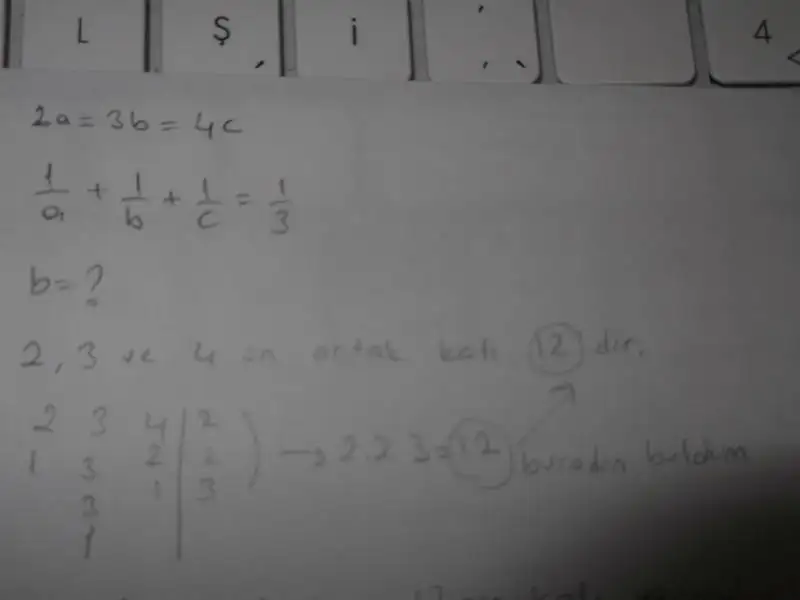 L Ş İ 4 <
2a = 3b = 4c
1/a + 1/b + 1/c = 1/3
b = ?
2, 3 ve 4 ün ortak katı 12 dir.
2 3 4 | 2
1 3 2 | 2 → 2.2.3=12 buradan buldum
3 1 | 3
1